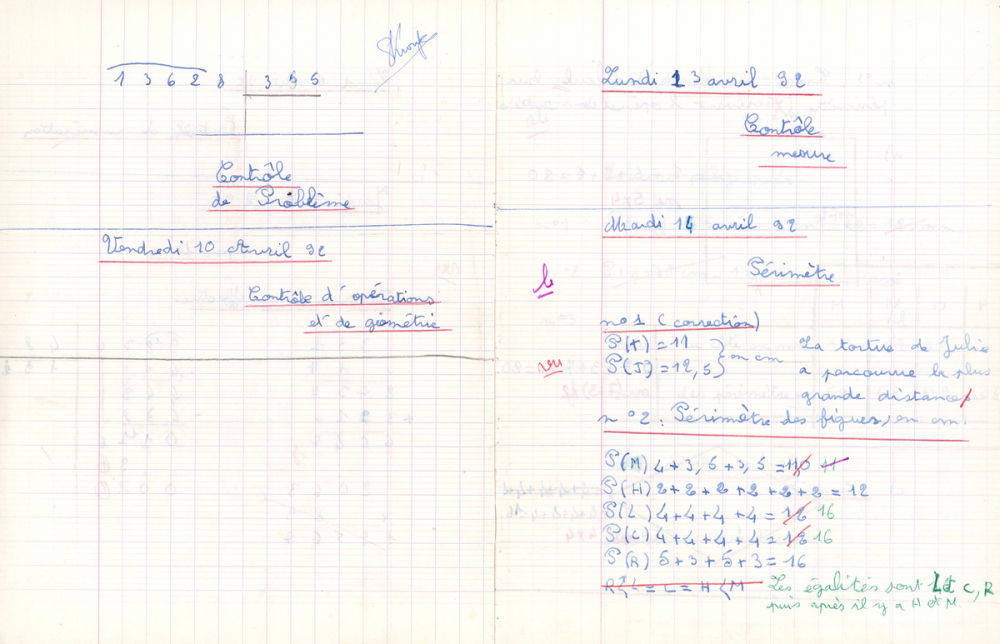 1 3 6 2 8 3 5 5
Contrôle
de Problème
Vendredi 10 Avril 92
Contrôle d'opérations
et de géométrie
Lundi 13 avril 92
Contrôle
mesure
Mardi 14 avril 92
Périmètre
n° 1 (correction)
P(T) = 11
P(J) = 12,5
en cm
La tortue de Julie
a parcourue la plus
grande distances
n° 2 : Périmètre des figures en cm.
P(M) 4 + 3,5 + 3,5 = 11
P(H) 2 + 2 + 2 + 2 + 2 + 2 = 12
P(L) 4 + 4 + 4 + 4 = 18 16
P(C) 4 + 4 + 4 + 4 = 18 16
P(R) 5 + 3 + 5 + 3 = 16
Les égalités sont L et C, R
puis après il y a H et M.
vu